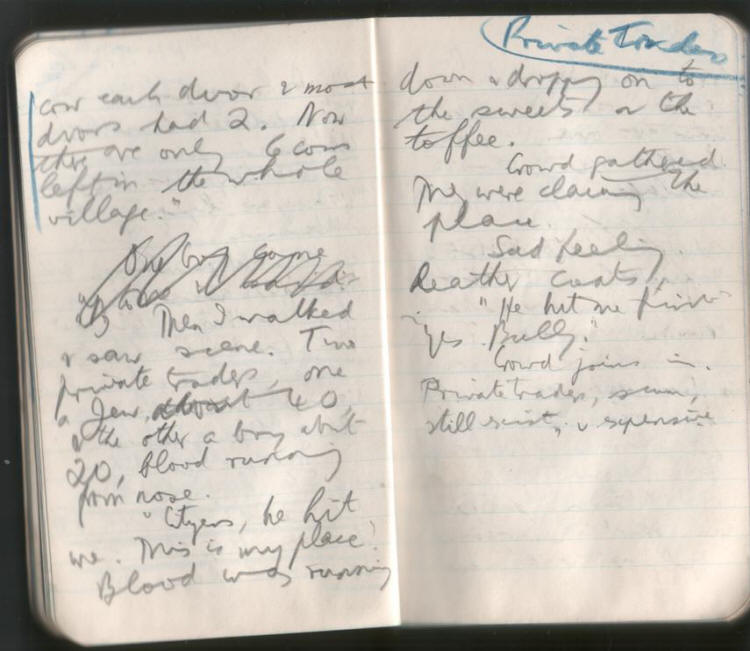 cow each dvor & most
dvors had 2. Now
there are only 6 cows
left in the whole
village."
One boy came
Then I walked
& saw scene. Two
private traders, one
a Jew, about 40,
& the other a boy abt
20, blood running
from nose.
"Citizens, he hit
me. This is my place!
Blood was running
Private Traders
down & dropping on to
the sweets or the
toffee.
Crowd gathered.
They were claiming the
place.
Sad feeling.
Leather coats,
"He hit me first"
"Yes Bully."
Crowd joins in.
Private traders, scum,
still exist, v expensive